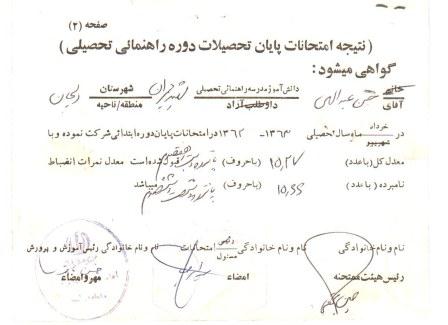 صفحه (۲)
(نتیجه امتحانات پایان تحصیلات دوره راهنمائی تحصیلی)
گواهی میشود:
خانم
آقای حسن عبدالهی دانش‌آموز مدرسه راهنمائی تحصیلی شهید چمران شهرستان
داوطلب آزاد منطقه/ناحیه
در خرداد ماه سال تحصیلی ۱۳۶۳-۱۳۶۲ در امتحانات پایان دوره ابتدائی شرکت نموده و با
شهریور
معدل کل (با عدد) ۱۵,۲۷ (با حروف) قبول شده است معدل نمرات انضباط
نامبرده (با عدد) ۱۵,۶۶ (با حروف) میباشد
نام و نام خانوادگی نام و نام خانوادگی مسئول امتحانات نام و نام خانوادگی رئیس آموزش و پرورش
رئیس هیئت ممتحنه امضاء مهر و امضاء